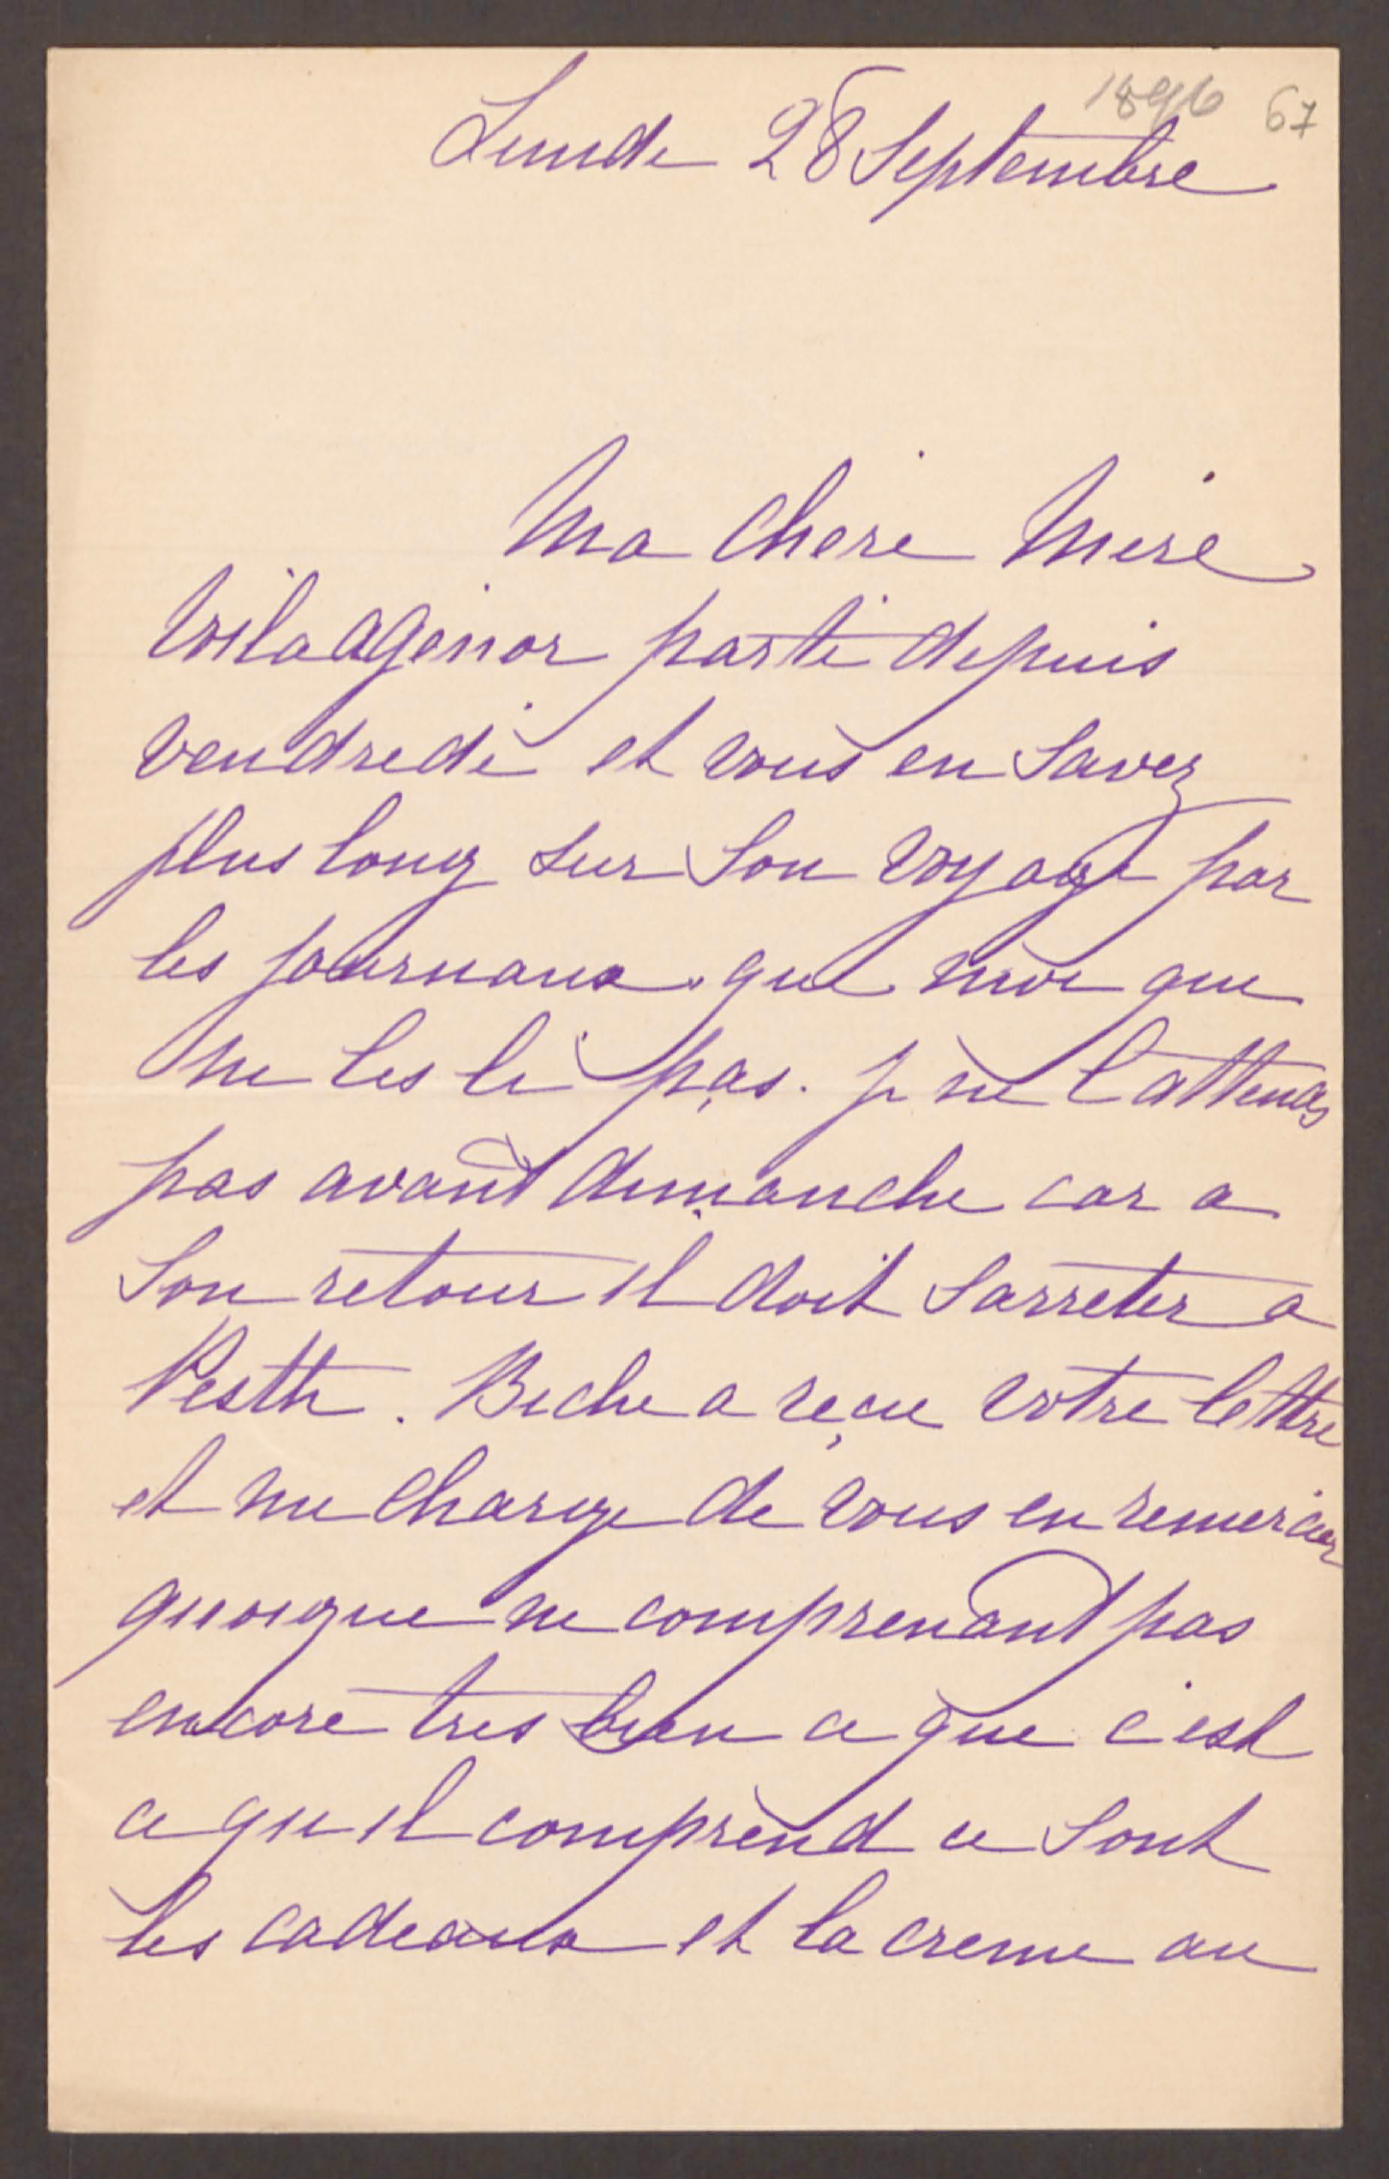 1896 67
Lundi 28 Septembre
Ma chere Mere
Voila Agenor parti depuis
vendredi et vous en savez
plus long sur son voyage par
les journaux que moi qui
ne les li pas. je ne l'attends
pas avant dimanche car a
son retour il doit sarreter a
Pesth. Biche a reçu votre lettre
et me charge de vous en remercier
quoique ne comprenant pas
encore tres bien ce que c'est
ce qu il comprend ce sont
les cadeaux et la creme au